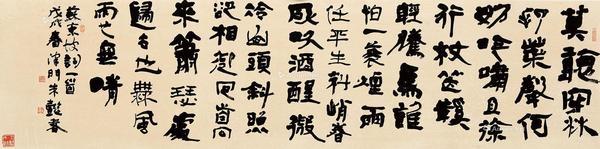 莫聽穿林
打葉聲何
妨吟嘯且徐
行竹杖芒鞋
輕勝馬誰
怕一蓑煙雨
任平生料峭春
風吹酒醒微
冷山頭斜照
卻相迎回首向
來蕭瑟處
歸去也無風
雨也無晴
蘇東坡詞一首
戊戌春津門朱懿春